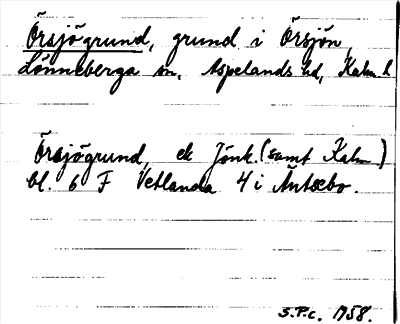 Örsjögrund, grund i Örsjön,
Lönneberga sn, Aspelands hd, Kalm. l
Örsjögrund, ek Jönk. (samt Kalm)
bl. 6 F Vetlanda 4 i Äntsebo.
S.P.c. 1958.